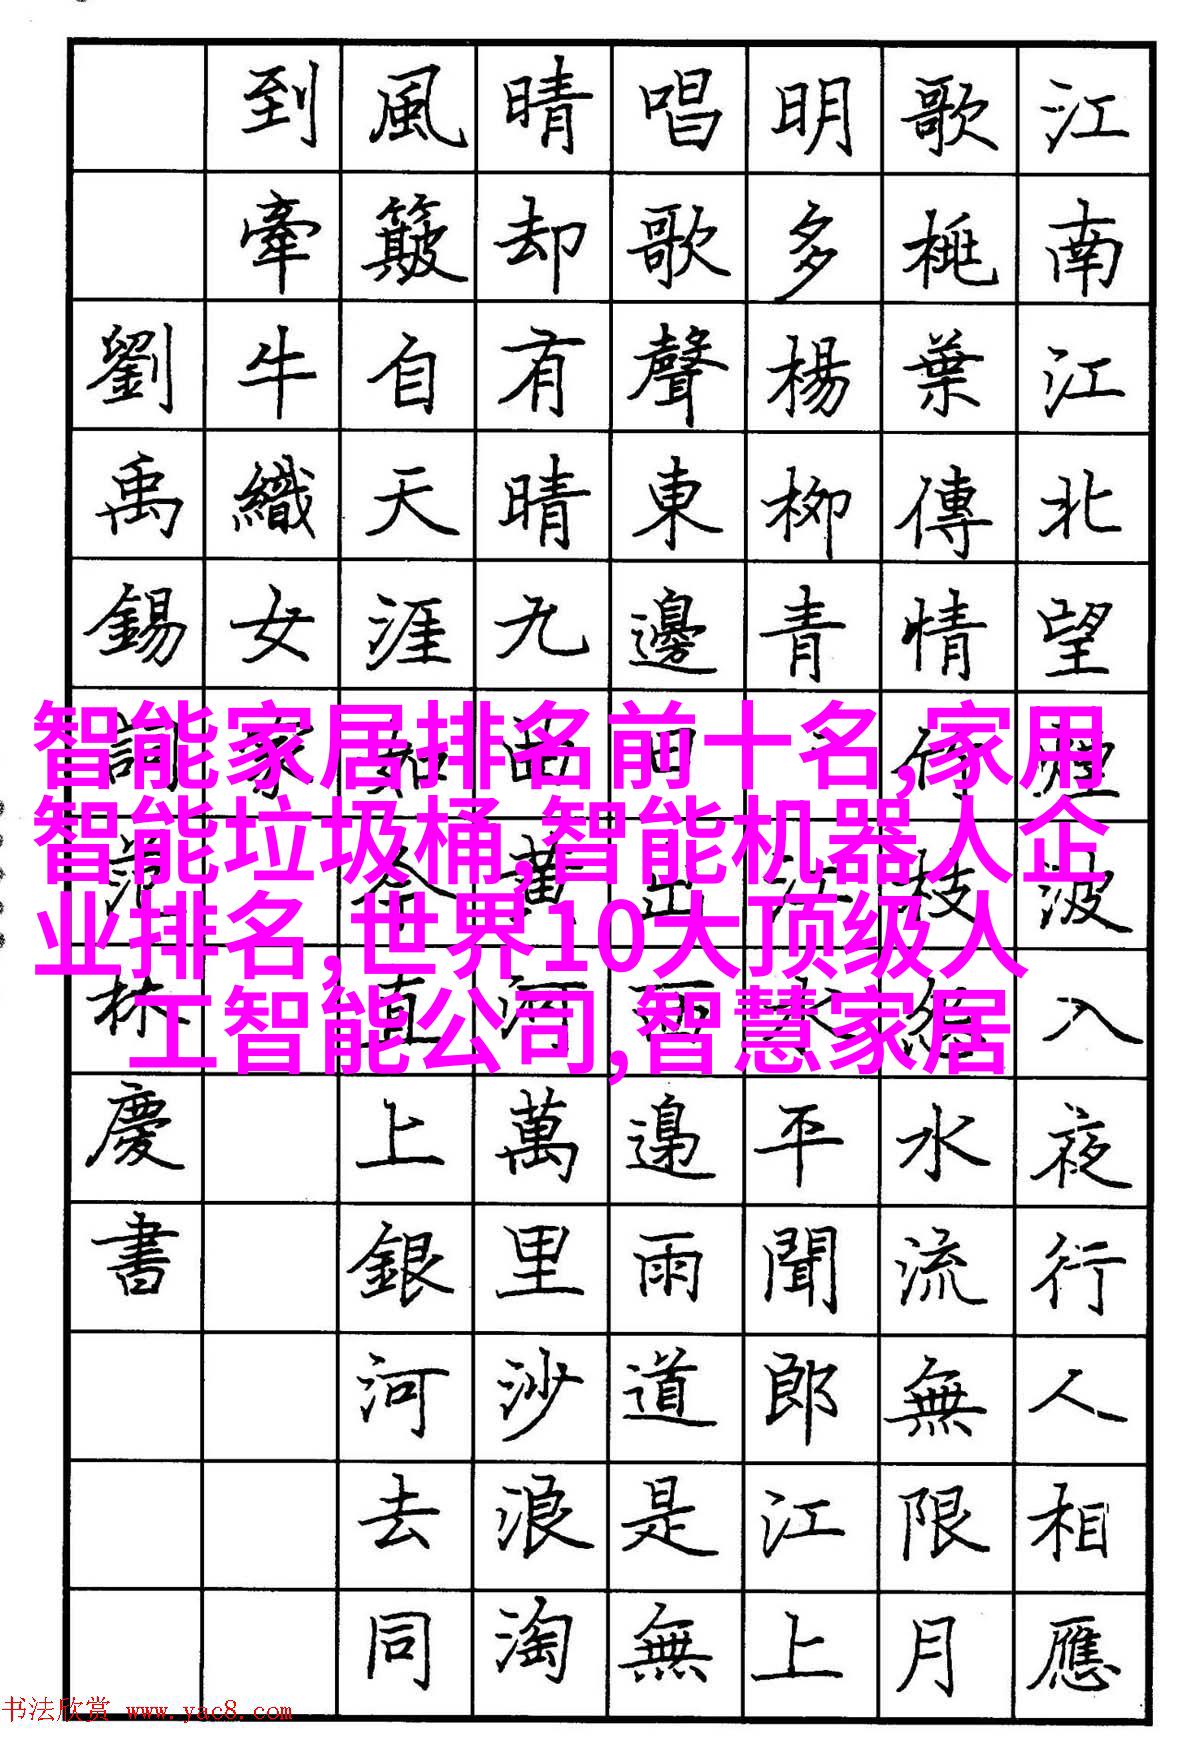 江南江北望煙波入夜行人相應
歌桃葉傳情竹枝怨水流無限月
明多楊柳青江水平聞郎江上
唱歌聲東邊日出西邊雨道是無
晴却有晴九曲黃河萬里沙浪淘
風簸自天涯如今直上銀河去同
到牽牛織女家
劉禹錫詞范林慶書
智能家居排名前十名,家用
智能垃圾桶,智能机器人企
业排名,世界10大顶级人
工智能公司,智慧家居
书法欣赏 www.yac8.com